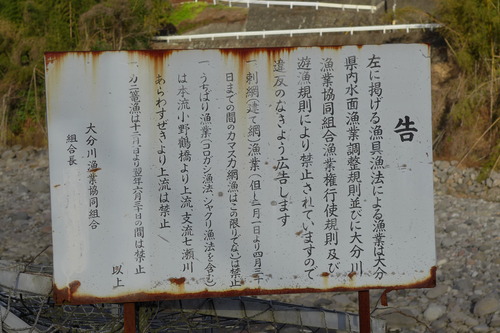 告
左に掲げる漁具漁法による漁業は大分
県内水面漁業調整規則並びに大分川
漁業協同組合漁業権行使規則及び
遊漁規則により禁止されていますので
違反のなきよう広告します
一刺網(建て網)漁業(但し二月一日より四月三十
日までの間のカマスカ網漁はこの限りでない)は禁止
一、うちばり漁業(コロガシ漁法、シャクリ漁法を含む)
は本流小野鶴橋より上流、支流七瀬川
あらわすぜきより上流は禁止
一、カニ篭漁は十二月一日より翌年六月三十日の間は禁止
以上
大分川漁業協同組合
組合長